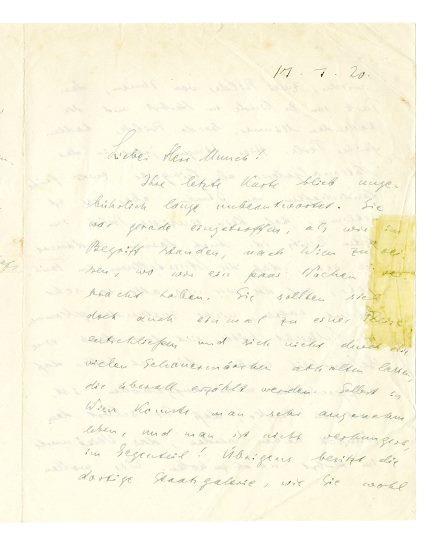 17. I. 20.
Lieber Herr Munch!
Ihre letzte Karte blieb unge-
bührlich lange unbeantwortet. Sie
war gerade eingetroffen, als wir im
Begriff standen, nach Wien zu rei-
sen, wo wir ein paar Wochen ver-
bracht haben. Sie sollten sich
doch auch einmal zu einer Reise
entschließen und sich nicht durch die
vielen Schauermärchen abhalten lassen,
die überall erzählt werden. Selbst in
Wien konnte man sehr angenehm
leben, und man ist nicht verhungert,
im Gegenteil! Übrigens besitzt die
dortige Staatsgalerie, wie Sie wohl